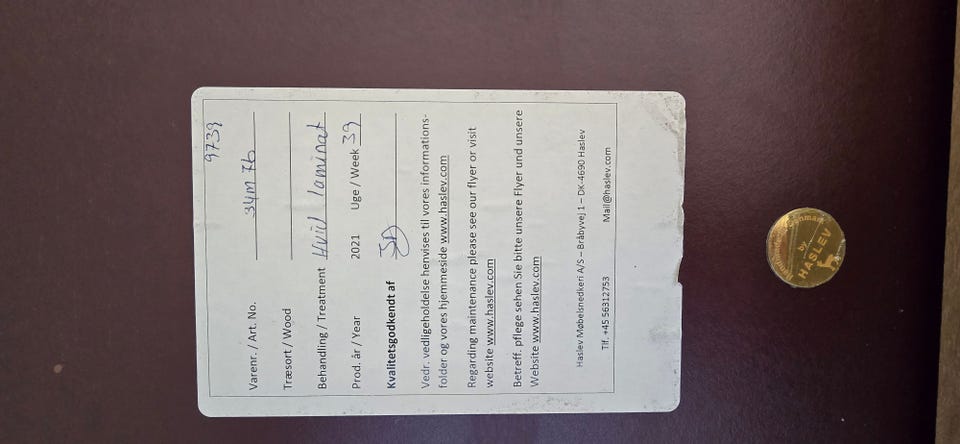 9739
Varenr. / Art. No. 34M Fb
Træsort / Wood
Behandling / Treatment Hvid laminat
Prod. år / Year 2021 Uge / Week 39
Kvalitetsgodkendt af
Vedr. vedligeholdelse henvises til vores informations-
folder og vores hjemmeside www.haslev.com
Regarding maintenance please see our flyer or visit
website www.haslev.com
Betreff. pflege sehen Sie bitte unsere Flyer und unsere
Website www.haslev.com
Haslev Møbelsnedkeri A/S – Bråbyvej 1 – DK-4690 Haslev
Tlf. +45 56312753 Mail@haslev.com
by
HASLEV